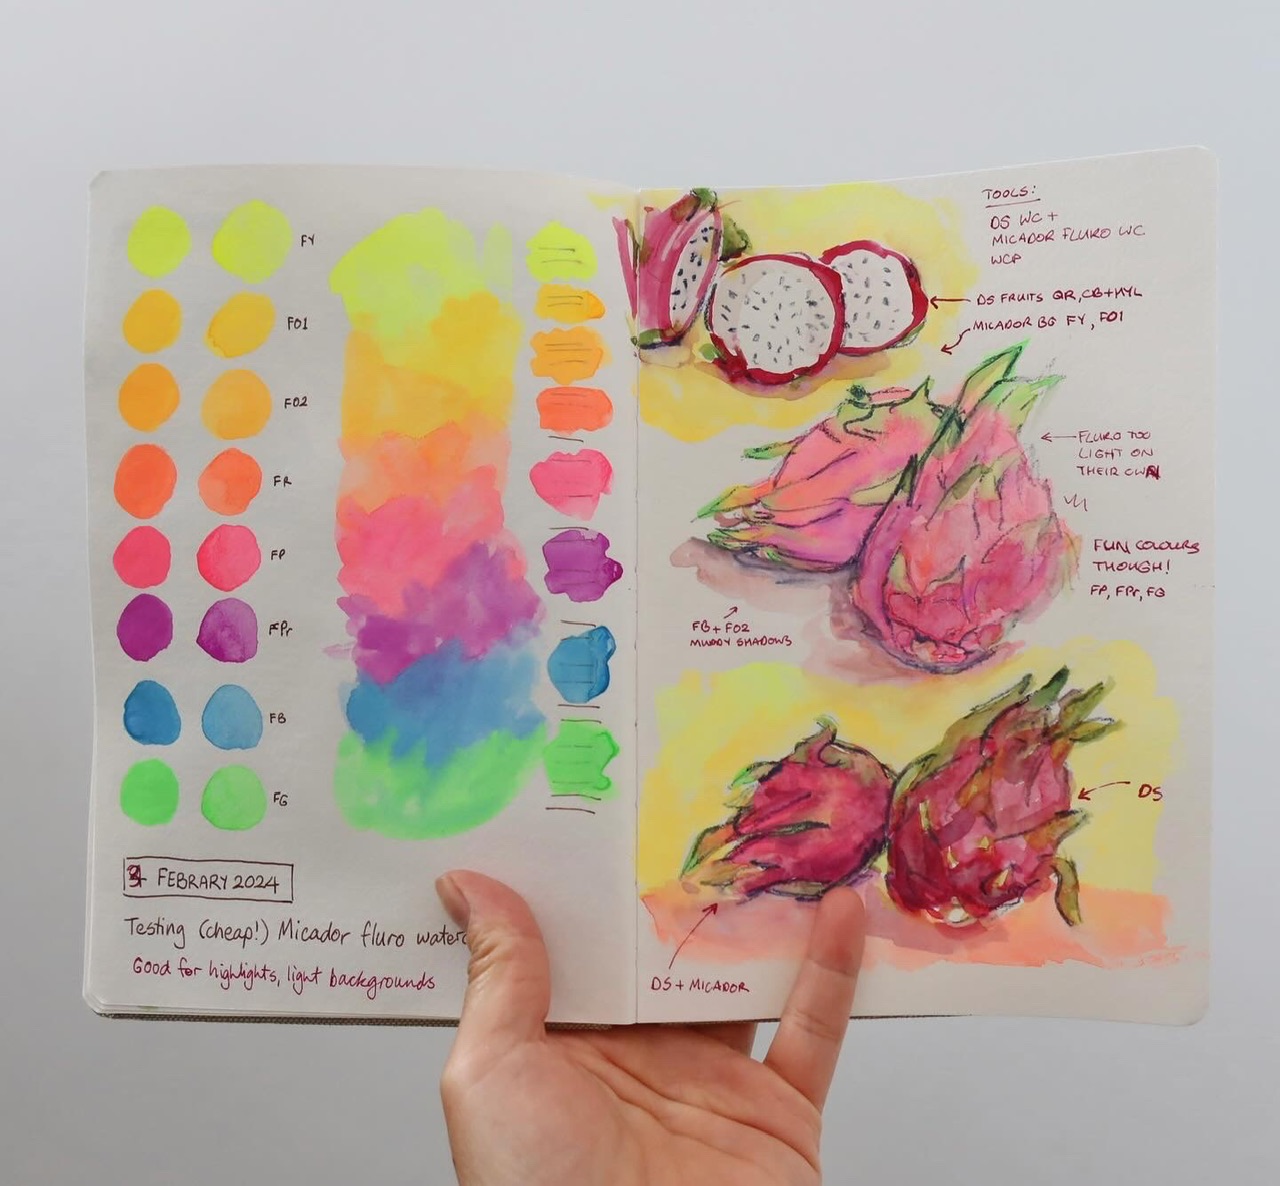 FY
FO1
FO2
FR
FP
FPr
FB
FG
FEBRARY 2024
Testing (cheap!) Micador fluro waterc
Good for highlights, light backgrounds
TOOLS:
DS WC +
MICADOR FLURO WC
WCP
DS FRUITS QR, CB+HYL
MICADOR BG FY, FO1
FLURO TOO
LIGHT ON
THEIR OWN
FUN COLOURS
THOUGH!
FP, FPr, FG
FB + FO2
MUDDY SHADOWS
DS
DS + MICADOR